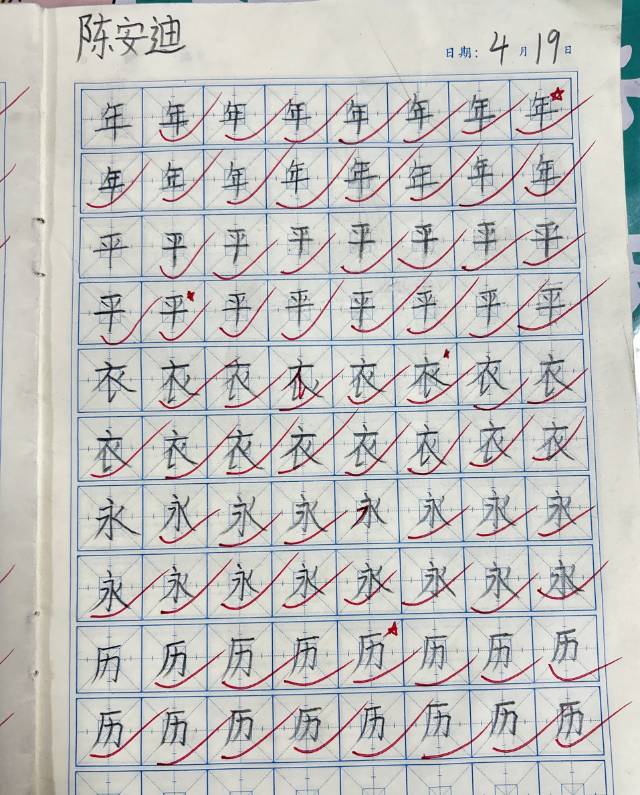 陈安迪
日期：4月19日
年年年年年年年年
年年年年年年年年
平平平平平平平平
平平平平平平平平
衣衣衣衣衣衣衣衣
衣衣衣衣衣衣衣衣
永永永永永永永永
永永永永永永永永
历历历历历历历历
历历历历历历历历